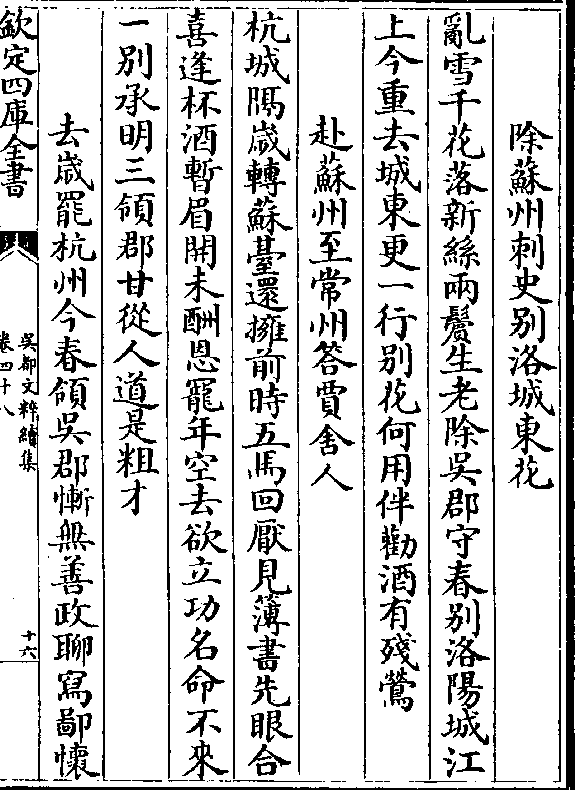 除蘇州刺史别洛城東花
亂雪千花落新絲兩鬢生老除吳郡守春别洛陽城江
上今重去城東更一行别花何用伴勸酒有殘鶯
赴蘇州至常州答賈舍人
杭城隅歲轉蘇臺還擁前時五馬回厭見簿書先眼合
喜逢杯酒暫眉開未酬恩寵年空去欲立功名命不來
一别承明三領郡甘從人道是粗才
去歲罷杭州今春領吳郡慚無善政聊寫鄙懷
欽定四庫全書
吳都文粹續集
卷四十八
十六